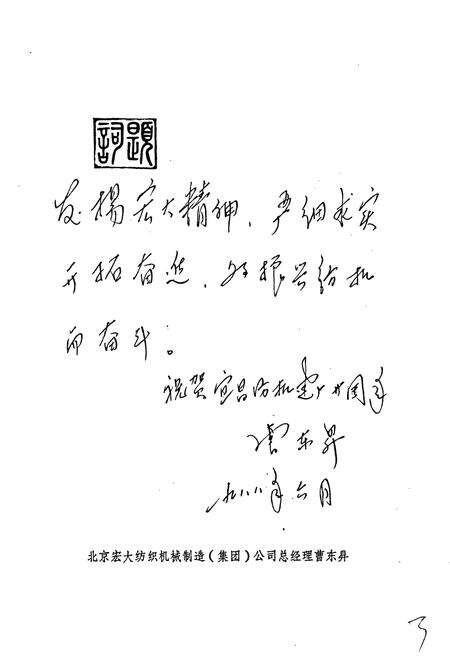 題詞
发扬宏大精神、严细求实
开拓奋进、为振兴纺机
而奋斗。
祝贺宜昌纺机建厂廿周年
曹东昇
一九八八年六月
北京宏大纺织机械制造(集团)公司总经理曹东昇
3